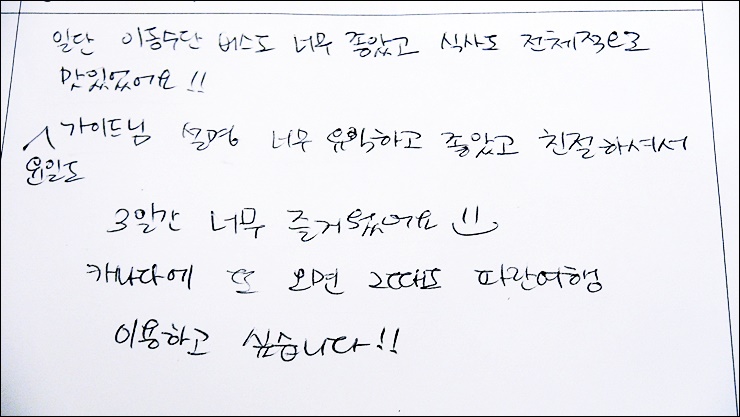 일단 이동수단 버스도 너무 좋았고 식사도 전체적으로
맛있었어요!!
가이드님 설명 너무 유익하고 좋았고 친절하셔서
3일간 너무 즐거웠어요
카나다에 또 오면 그때도 파란여행
이용하고 싶습니다!!